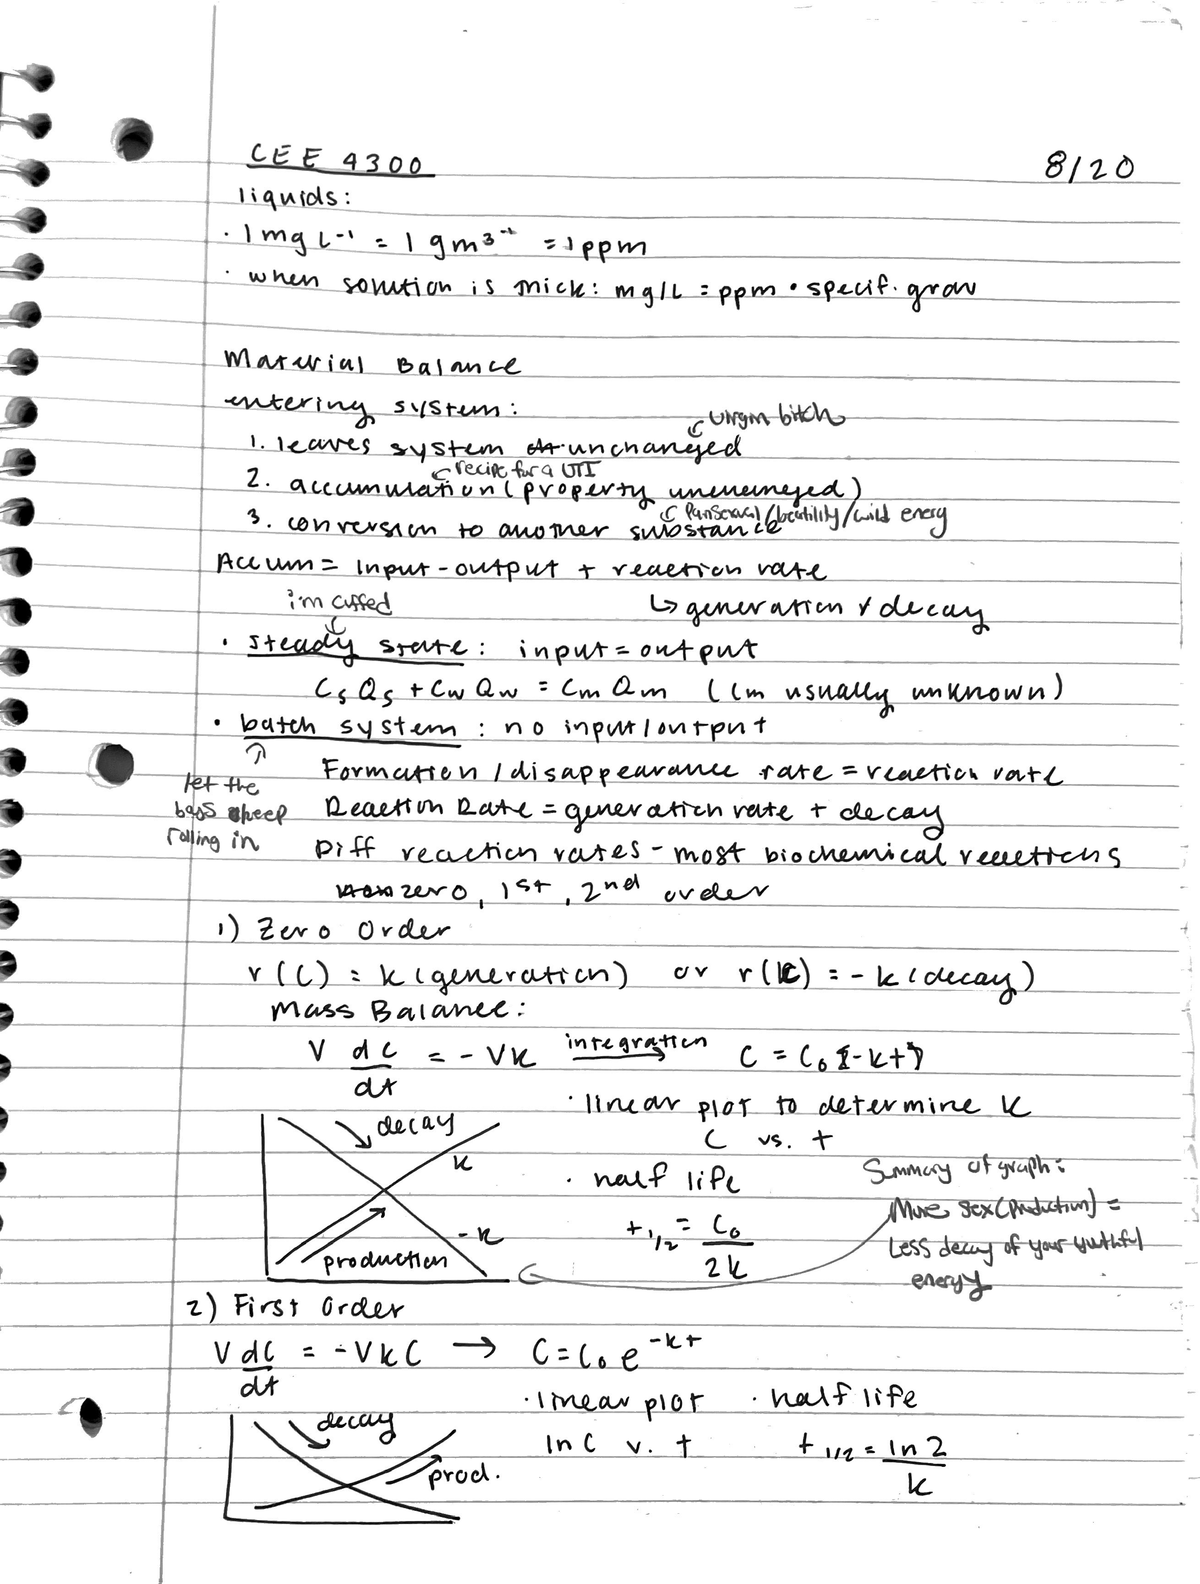 CEE 4300
8/20
liquids:
· 1 mg L⁻¹ = 1 g m³⁻¹ = 1 ppm
· when solution is thick: mg/L = ppm • specif. grav
Material Balance
entering system:
virgin bitch
1. leaves system unchanged
recipe for a UTI
2. accumulation (property unchanged)
Pansexual/beatility/wild energy
3. conversion to another substance
Accum = input - output + reaction rate
i'm cuffed
↳ generation & decay
· steady state: input = output
CsQs + CwQw = CmQm (Cm usually unknown)
· batch system: no input/output
let the
bags sheep
rolling in
Formation / disappearance rate = reaction rate
Reaction Rate = generation rate + decay
Diff reaction rates - most biochemical reactions
zero, 1st, 2nd order
1) Zero Order
r(C) = k (generation) or r(C) = -k (decay)
Mass Balance:
V dC/dt = -Vk integration → C = C₀ - kt
· linear plot to determine k
C vs. t
decay
k
-k
production
· half life
t 1/2 = C₀/2k
Summary of graph:
More sex (production) =
Less decay of your youthful
energy
2) First Order
V dC/dt = -VkC → C = C₀e^-kt
· linear plot
ln C v. t
· half life
t 1/2 = ln 2/k
decay
prod.